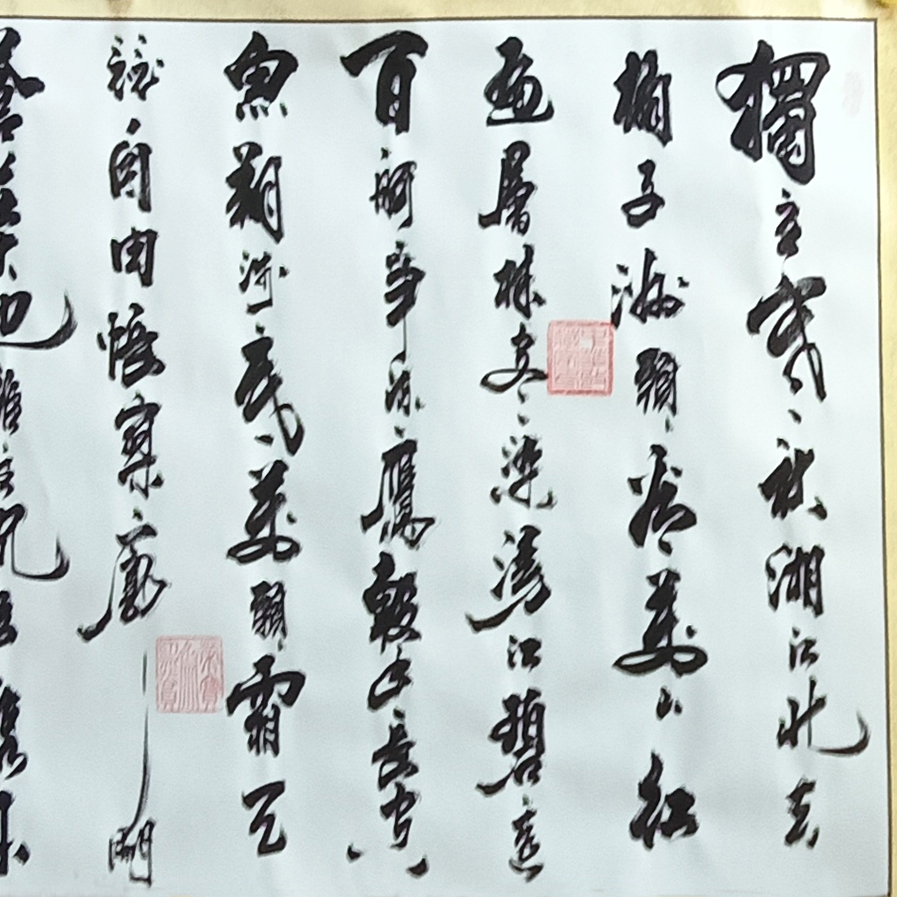 獨立寒秋湘江北去
橘子洲頭看萬山紅
遍層林盡染漫江碧透
百舸爭流鷹擊長空
魚翔淺底萬類霜天
競自由悵寥廓問
蒼茫大地誰主沉浮攜來